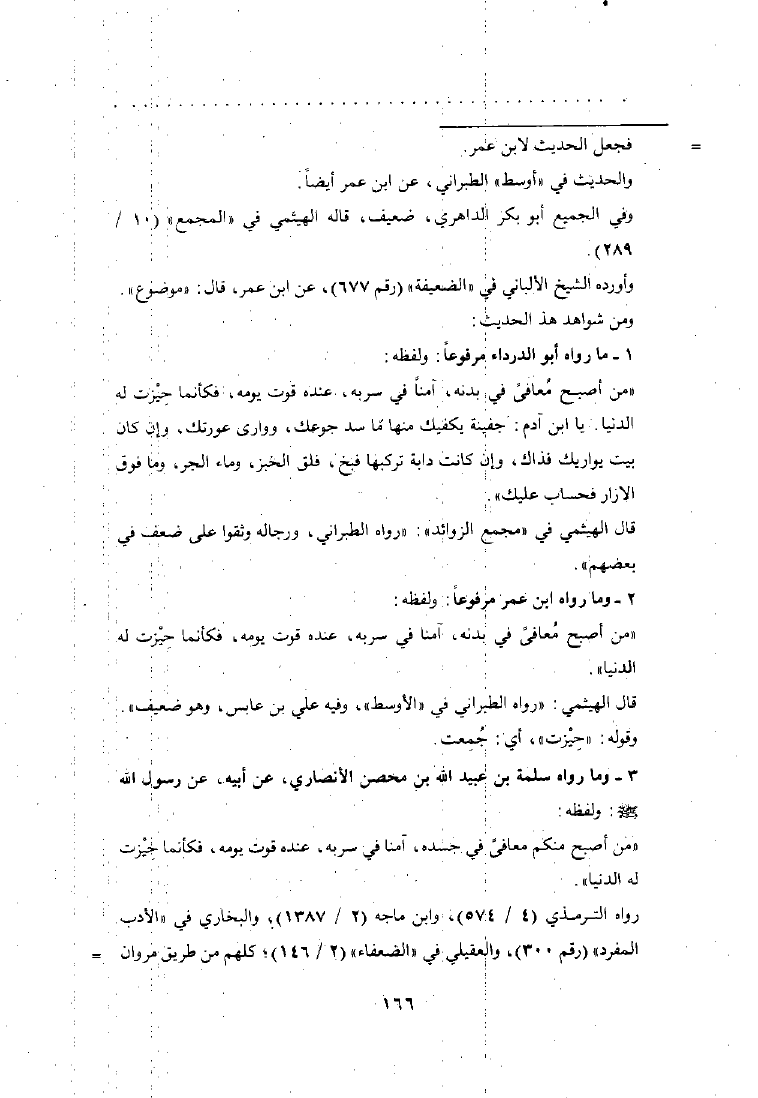 = فجعل الحديث لابن عمر.
والحديث في «أوسط» الطبراني، عن ابن عمر أيضاً.
وفي الجميع أبو بكر الداهري، ضعيف، قاله الهيثمي في «المجمع» (١٠ /
٢٨٩).
وأورده الشيخ الألباني في «الضعيفة» (رقم ٦٧٧)، عن ابن عمر، قال: «موضوع».
ومن شواهد هذ الحديث:
١ ـ ما رواه أبو الدرداء مرفوعاً: ولفظه:
«من أصبح مُعافىً في بدنه، آمناً في سربه، عنده قوت يومه، فكأنما حِيْزت له
الدنيا. يا ابن آدم: جفينة يكفيك منها مّا سد جوعك، ووارى عورتك، وإن كان
بيت يواريك فذاك، وإن كانت دابة تركبها فبخ، فلق الخبز، وماء الجر، وما فوق
الازار فحساب عليك».
قال الهيثمي في «مجمع الزوائد»: «رواه الطبراني، ورجاله وثقوا على ضعف في
بعضهم».
٢ ـ وما رواه ابن عمر مرفوعاً: ولفظه:
«من أصبح مُعافىً في بدنه، آمنا في سربه، عنده قوت يومه، فكأنما حِيْزت له
الدنيا».
قال الهيثمي: «رواه الطبراني في «الأوسط»، وفيه علي بن عابس، وهو ضعيف».
وقوله: «حِيْزت»، أي: جُمعت.
٣ ـ وما رواه سلمة بن عبيد الله بن محصن الأنصاري، عن أبيه، عن رسول الله
ﷺ: ولفظه:
«من أصبح منكم معافىً في جسده، آمنا في سربه، عنده قوت يومه، فكأنما حِيْزت
له الدنيا».
رواه الترمذي (٤ / ٥٧٤)، وابن ماجه (٢ / ١٣٨٧)، والبخاري في «الأدب
المفرد» (رقم ٣٠٠)، والعقيلي في «الضعفاء» (٢ / ١٤٦)؛ كلهم من طريق مروان =
١٦٦